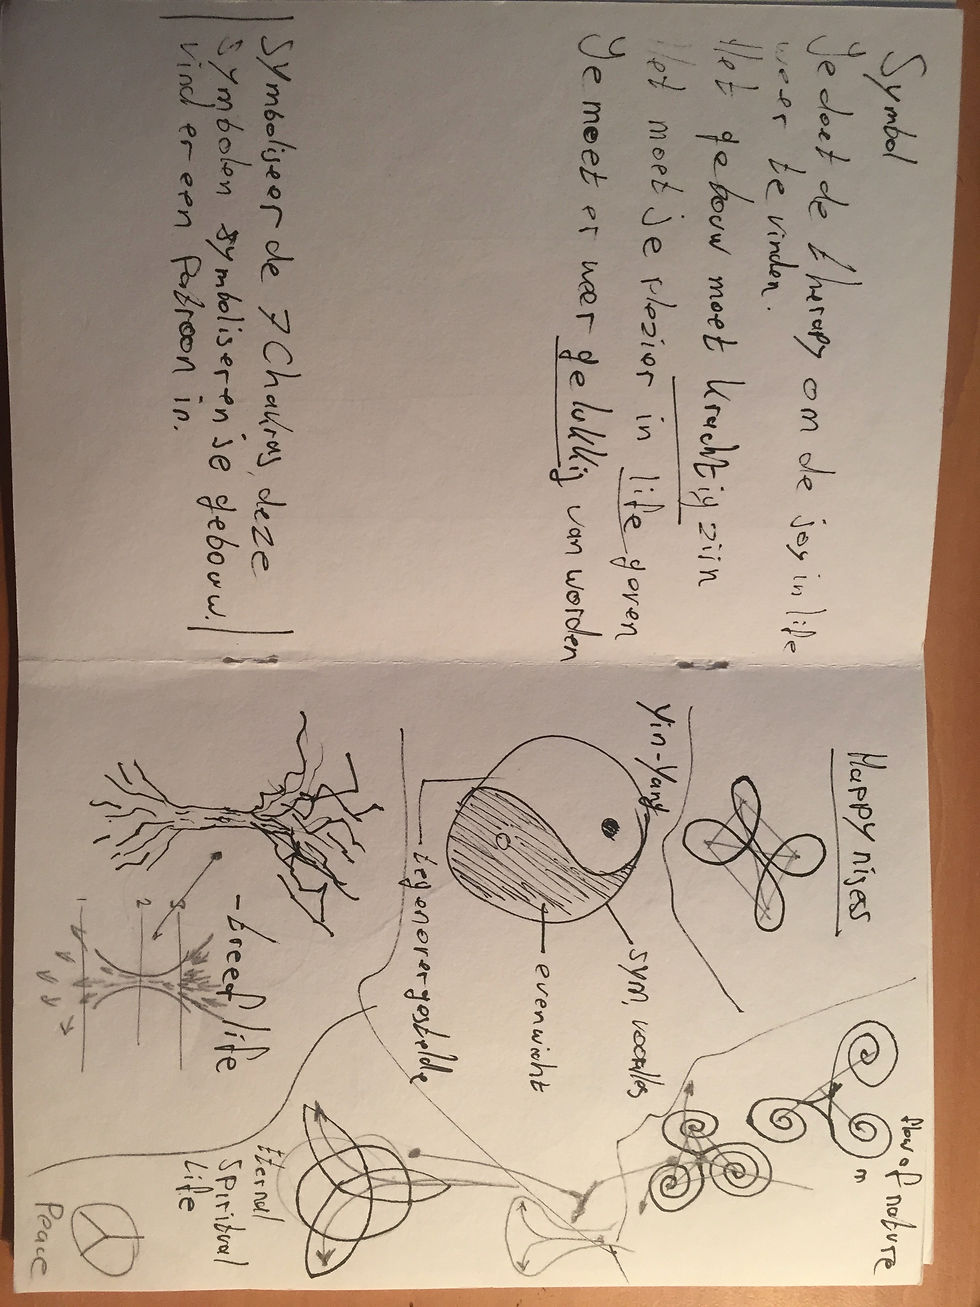 Symbol
Je doet de therapy om de joy in life
weer te vinden.
Het gebouw moet krachtig zijn
Het moet je plezier in life geven
Je moet er weer gelukkig van worden
Symboliseer de 7 Chakras, deze
symbolen symboliseren je gebouw.
vind er een patroon in.
Happy nises
flow of nature
m
Yin-Yang
sym, voor alles
evenwicht
tegenovergestelde
- tree of life
3
2
1
Eternal
Spiritual
Life
Peace